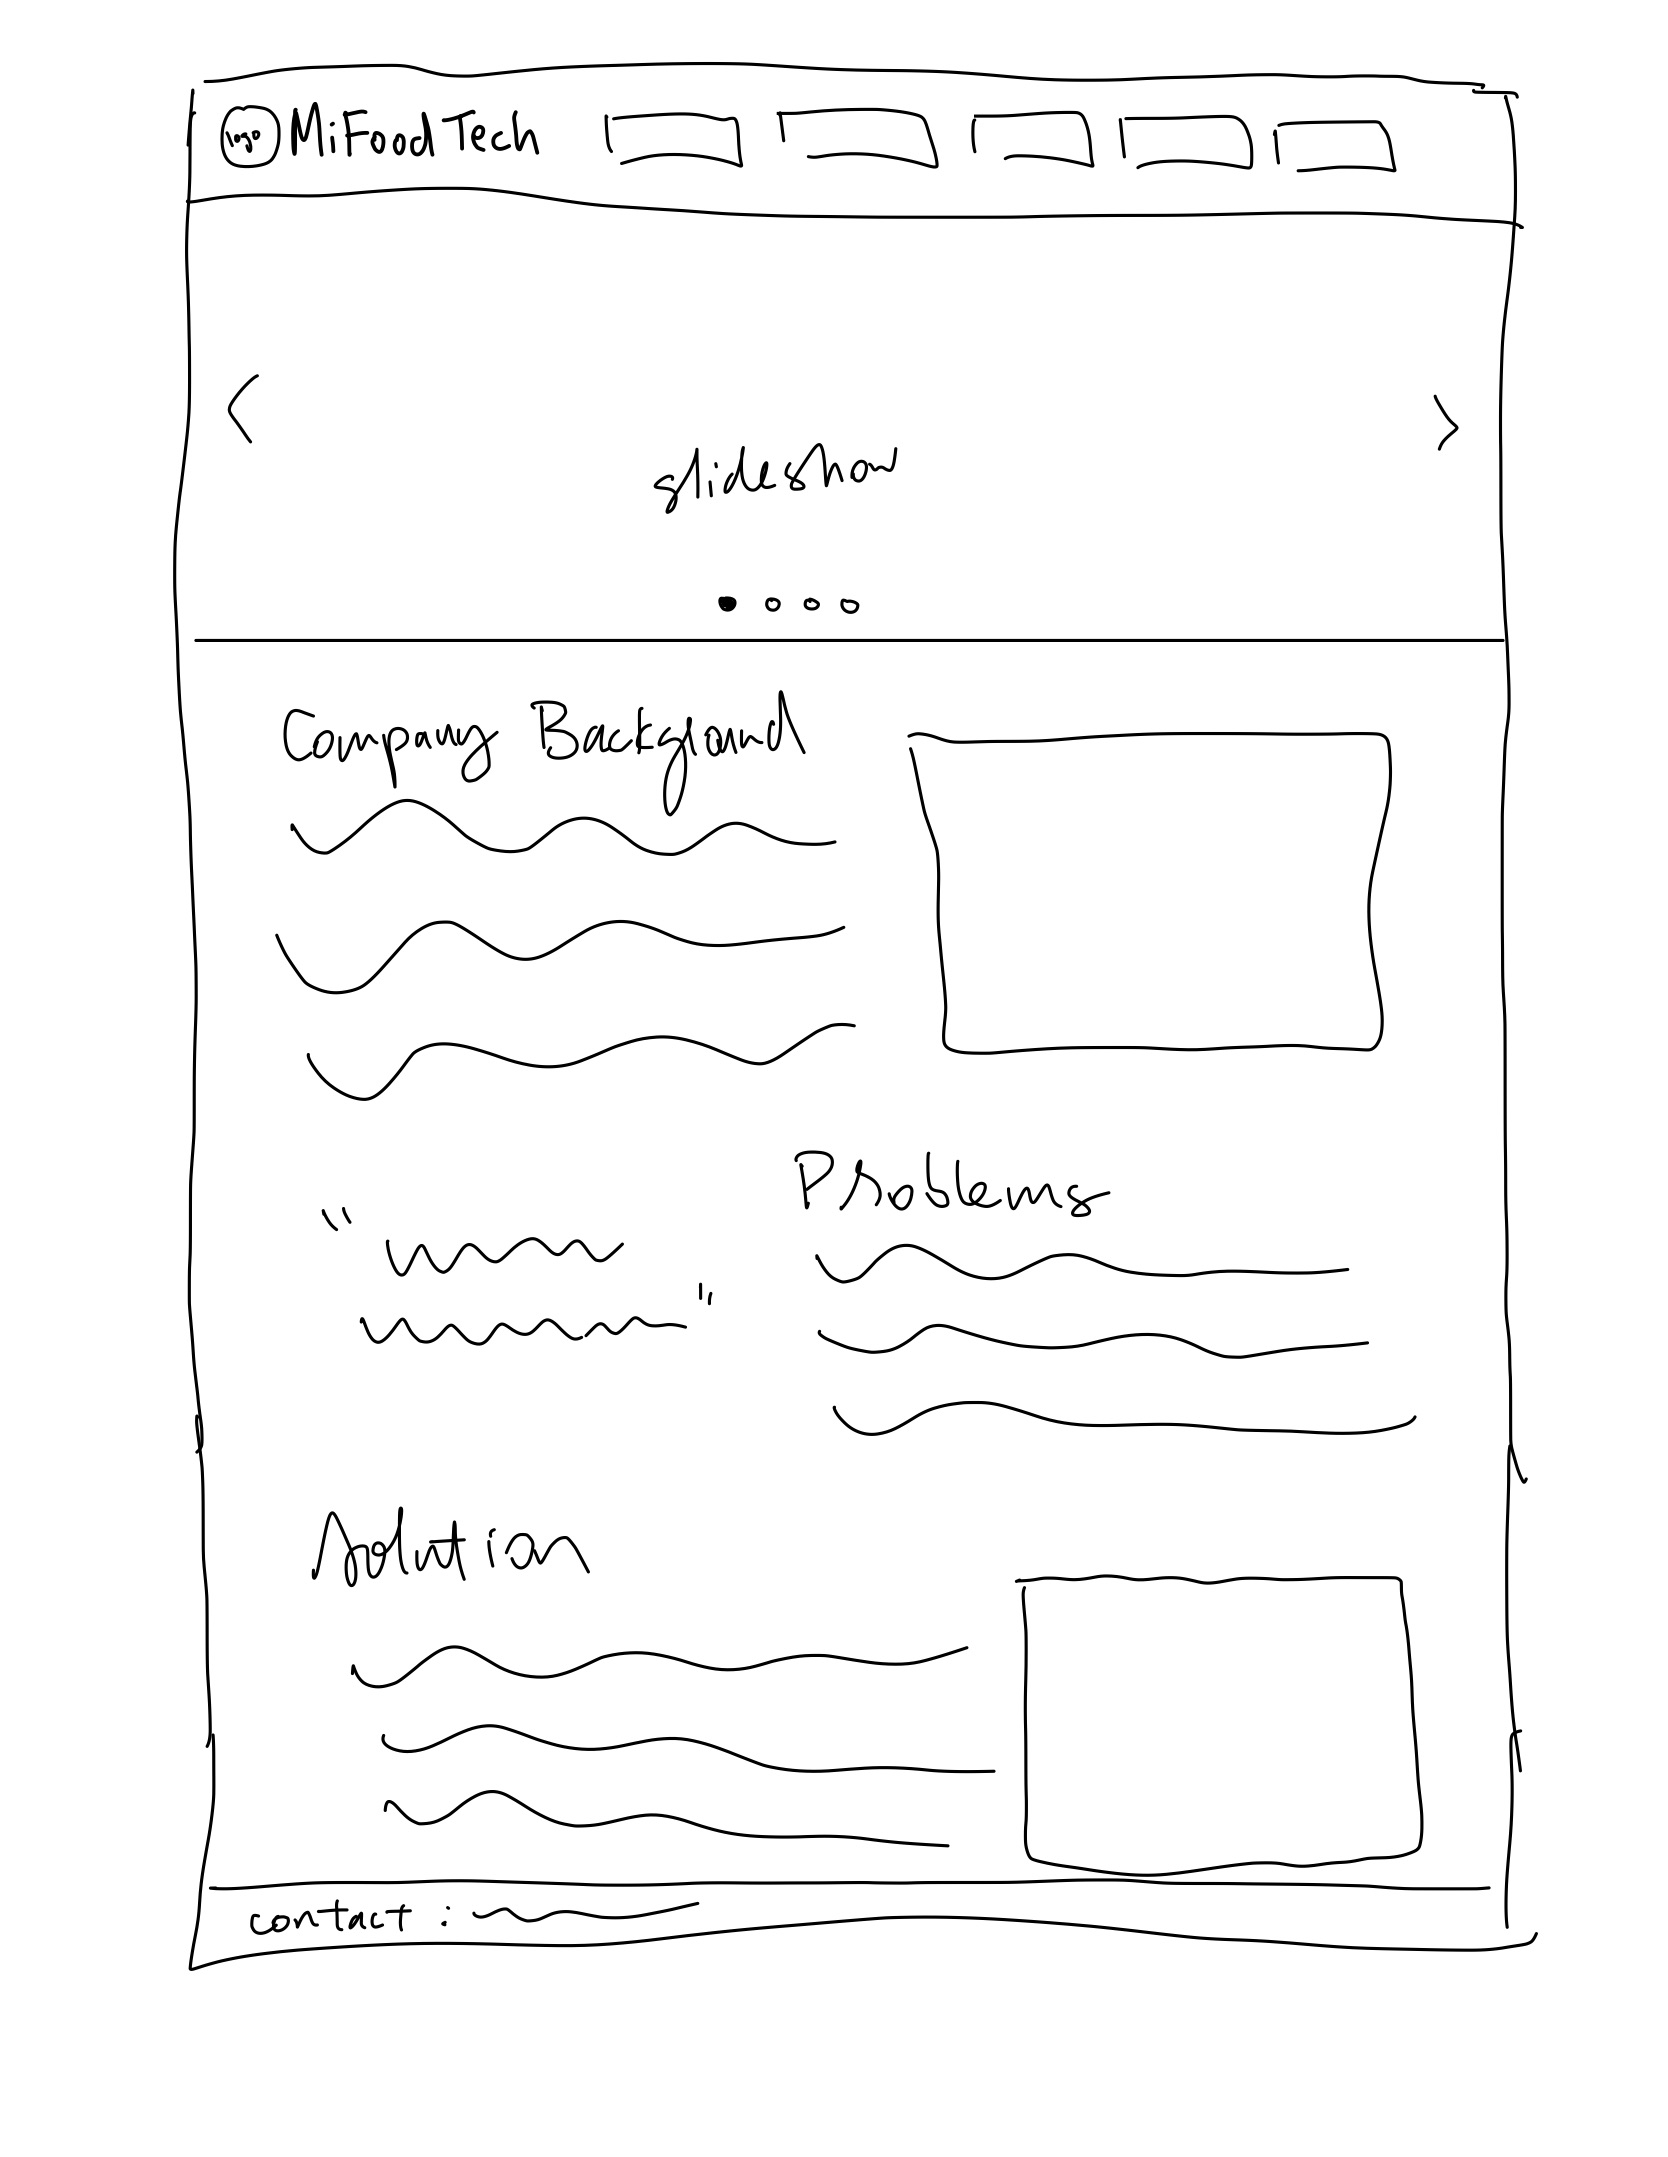 logo MiFoodTech
slideshow
Company Background
Problems
"
"
Solution
contact :